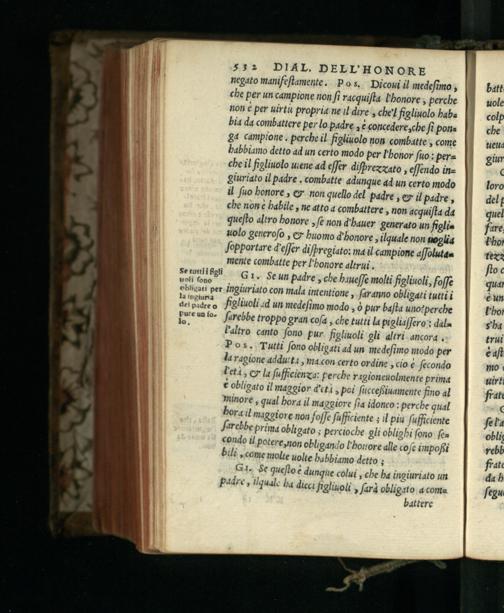 532 DIAL. DELL'HONORE
negato manifestamente. Pos. Dicoui il medesimo,
che per un campione non si racquista l'honore, perche
non è per uirtù propria ne il dire, che'l figliuolo hab-
bia da combattere per lo padre, è concedere, che si pon-
ga campione. perche il figliuolo non combatte, come
habbiamo detto ad un certo modo per l'honor suo: per-
che il figliuolo uiene ad esser disprezzato, essendo in-
giuriato il padre. combatte adunque ad un certo modo
il suo honore, & non quello del padre, & il padre,
che non è habile, ne atto a combattere, non acquista da
questo altro honore, se non d'hauer generato un figli-
uolo generoso, & huomo d'honore, ilquale non uoglia
sopportare d'esser dispregiato: ma il campione assoluta-
mente combatte per l'honore altrui.
Se tutti i figli
uoli sono
obligati per
la ingiuria
del padre o
pure un so-
lo.
GI. Se un padre, che hauesse molti figliuoli, fosse
ingiuriato con mala intentione, saranno obligati tutti i
figliuoli ad un medesimo modo, ò pur basta uno? perche
sarebbe troppo gran cosa, che tutti la pigliassero: dal-
l'altro canto sono pur figliuoli gli altri ancora.
Pos. Tutti sono obligati ad un medesimo modo per
la ragione addutta, ma con certo ordine, cio è secondo
l'età, & la sufficienza: perche ragioneuolmente prima
è obligato il maggior d'età, poi successiuamente fino al
minore, qual hora il maggiore sia idoneo: perche qual
hora il maggiore non fosse sufficiente; il piu sufficiente
sarebbe prima obligato; percioche gli oblighi sono se-
condo il potere, non obligando l'honore alle cose impossi
bili, come molte uolte habbiamo detto;
GI. Se questo è dunque colui, che ha ingiuriato un
padre, ilquale ha dieci figliuoli, sarà obligato a com-
battere